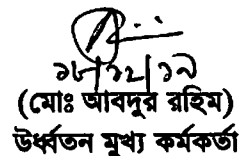 ১৮/১২/১৯
(মোঃ আবদুর রহিম)
উর্ধ্বতন মুখ্য কর্মকর্তা